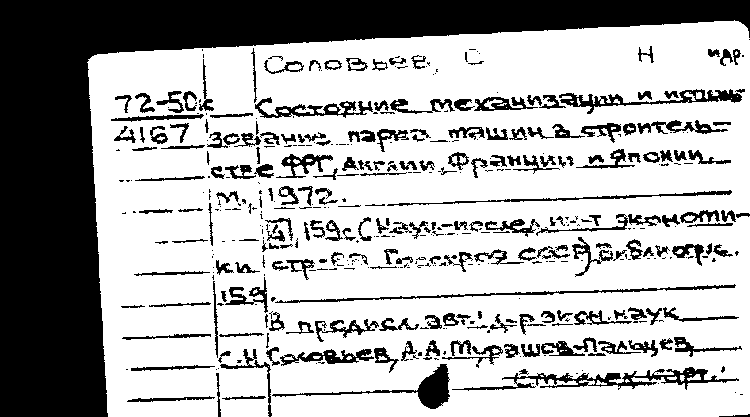 Соловьев, С Н идр.
72-50к Состояние механизации и исполь-
4167 зование парка машин в строитель-
стве ФРГ, Англии, Франции и Японии.
М., 1972.
[4], 159с (Науч.-исслед ин-т экономи-
ки стр-ва Госстроя СССР) Библиогр.с.
159.
В предисл. авт.: д-р экон. наук
С.Н. Соловьев, А.А. Мурашов-Пальцев,
См. след. карт.